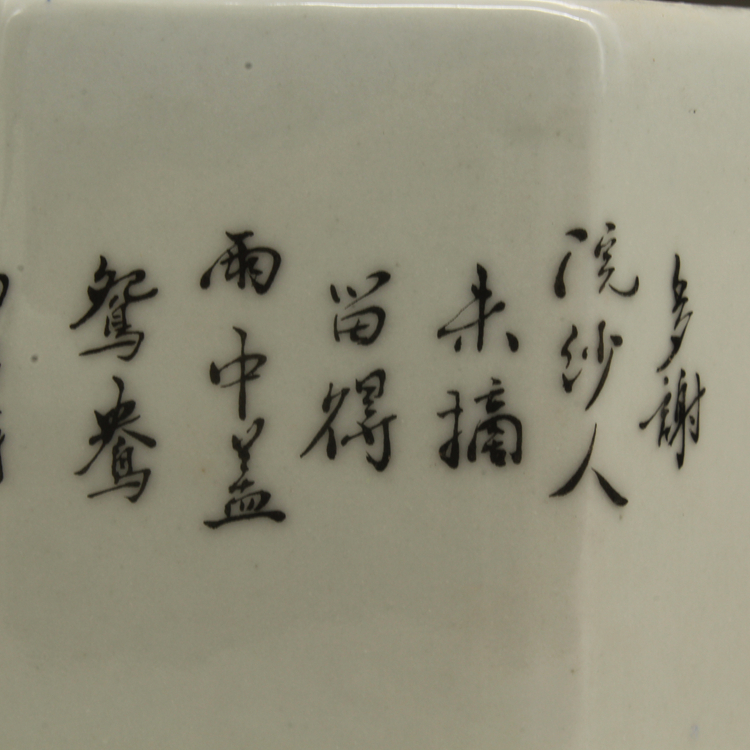 多謝
浣紗人
未摘
留得
雨中葢
鴛鴦